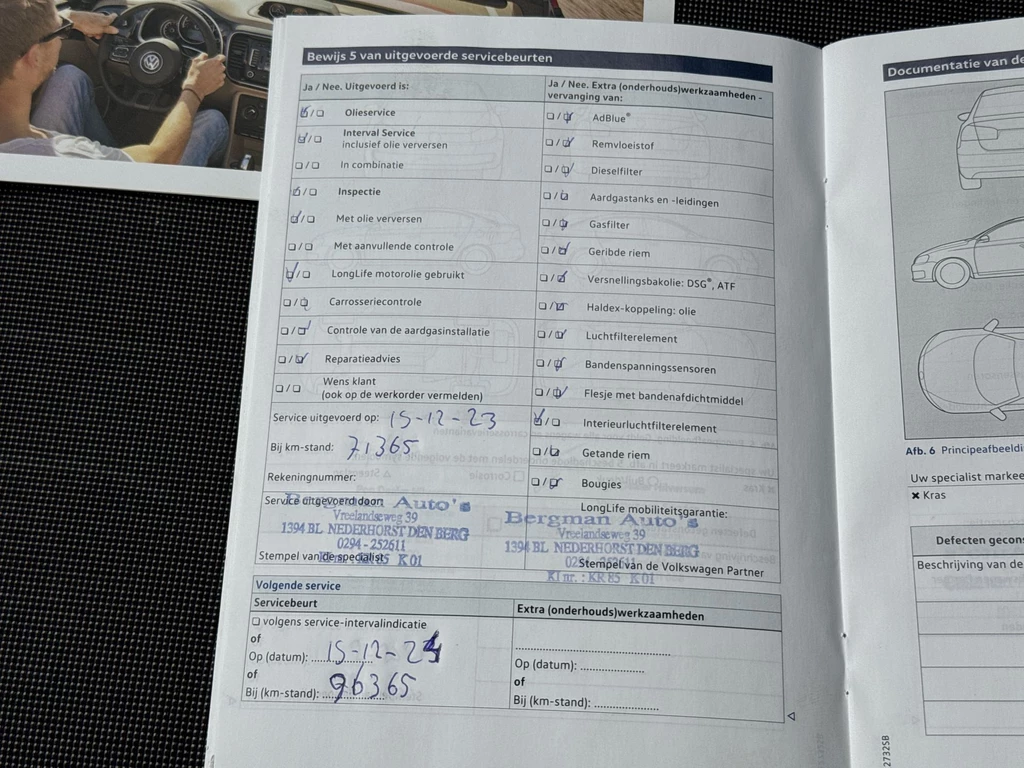 Bewijs 5 van uitgevoerde servicebeurten
Ja / Nee. Uitgevoerd is:
Olieservice
Interval Service
inclusief olie verversen
In combinatie
Inspectie
Met olie verversen
Met aanvullende controle
LongLife motorolie gebruikt
Carrosseriecontrole
Controle van de aardgasinstallatie
Reparatieadvies
Wens klant
(ook op de werkorder vermelden)
Service uitgevoerd op: 15-12-23
Bij km-stand: 71365
Rekeningnummer:
Service uitgevoerd door:
Bergman Auto's
Vreelandseweg 39
1394 BL NEDERHORST DEN BERG
0294-252611
Kl nr. : KR85 K01
Stempel van de specialist
Ja / Nee. Extra (onderhouds)werkzaamheden -
vervanging van:
AdBlue®
Remvloeistof
Dieselfilter
Aardgastanks en -leidingen
Gasfilter
Geribde riem
Versnellingsbakolie: DSG®, ATF
Haldex-koppeling: olie
Luchtfilterelement
Bandenspanningssensoren
Flesje met bandenafdichtmiddel
Interieurluchtfilterelement
Getande riem
Bougies
LongLife mobiliteitsgarantie:
Bergman Auto's
Vreelandseweg 39
1394 BL NEDERHORST DEN BERG
0294-252611
Kl nr. : KR85 K01
Stempel van de Volkswagen Partner
Volgende service
Servicebeurt
volgens service-intervalindicatie
of
Op (datum): 15-12-24
of
Bij (km-stand): 96365
Extra (onderhouds)werkzaamheden
Op (datum):
of
Bij (km-stand):
Documentatie van de
Afb. 6 Principeafbeeldi
Uw specialist markee
✖ Kras
Defecten gecons
Beschrijving van de
27325B